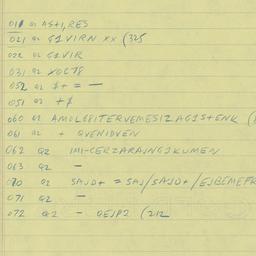 011 a2 AS+1,RES
021 a2 G1VIRN XX (325
022 a2 G1VIR
031 a2 VOC78
052 a2 $+ = —
051 a2 +$
060 a2 AMOLGEITERVEMESIZAGIS+ENK (
061 a2 + QVENIDVEN
062 a2 IMI-CERZARAJNGIKUMEN
063 a2 —
070 a2 SAJD+ = SAJ/SAJD+/EJBEMEFR
071 a2 —
072 a2 — QEJP2 (212